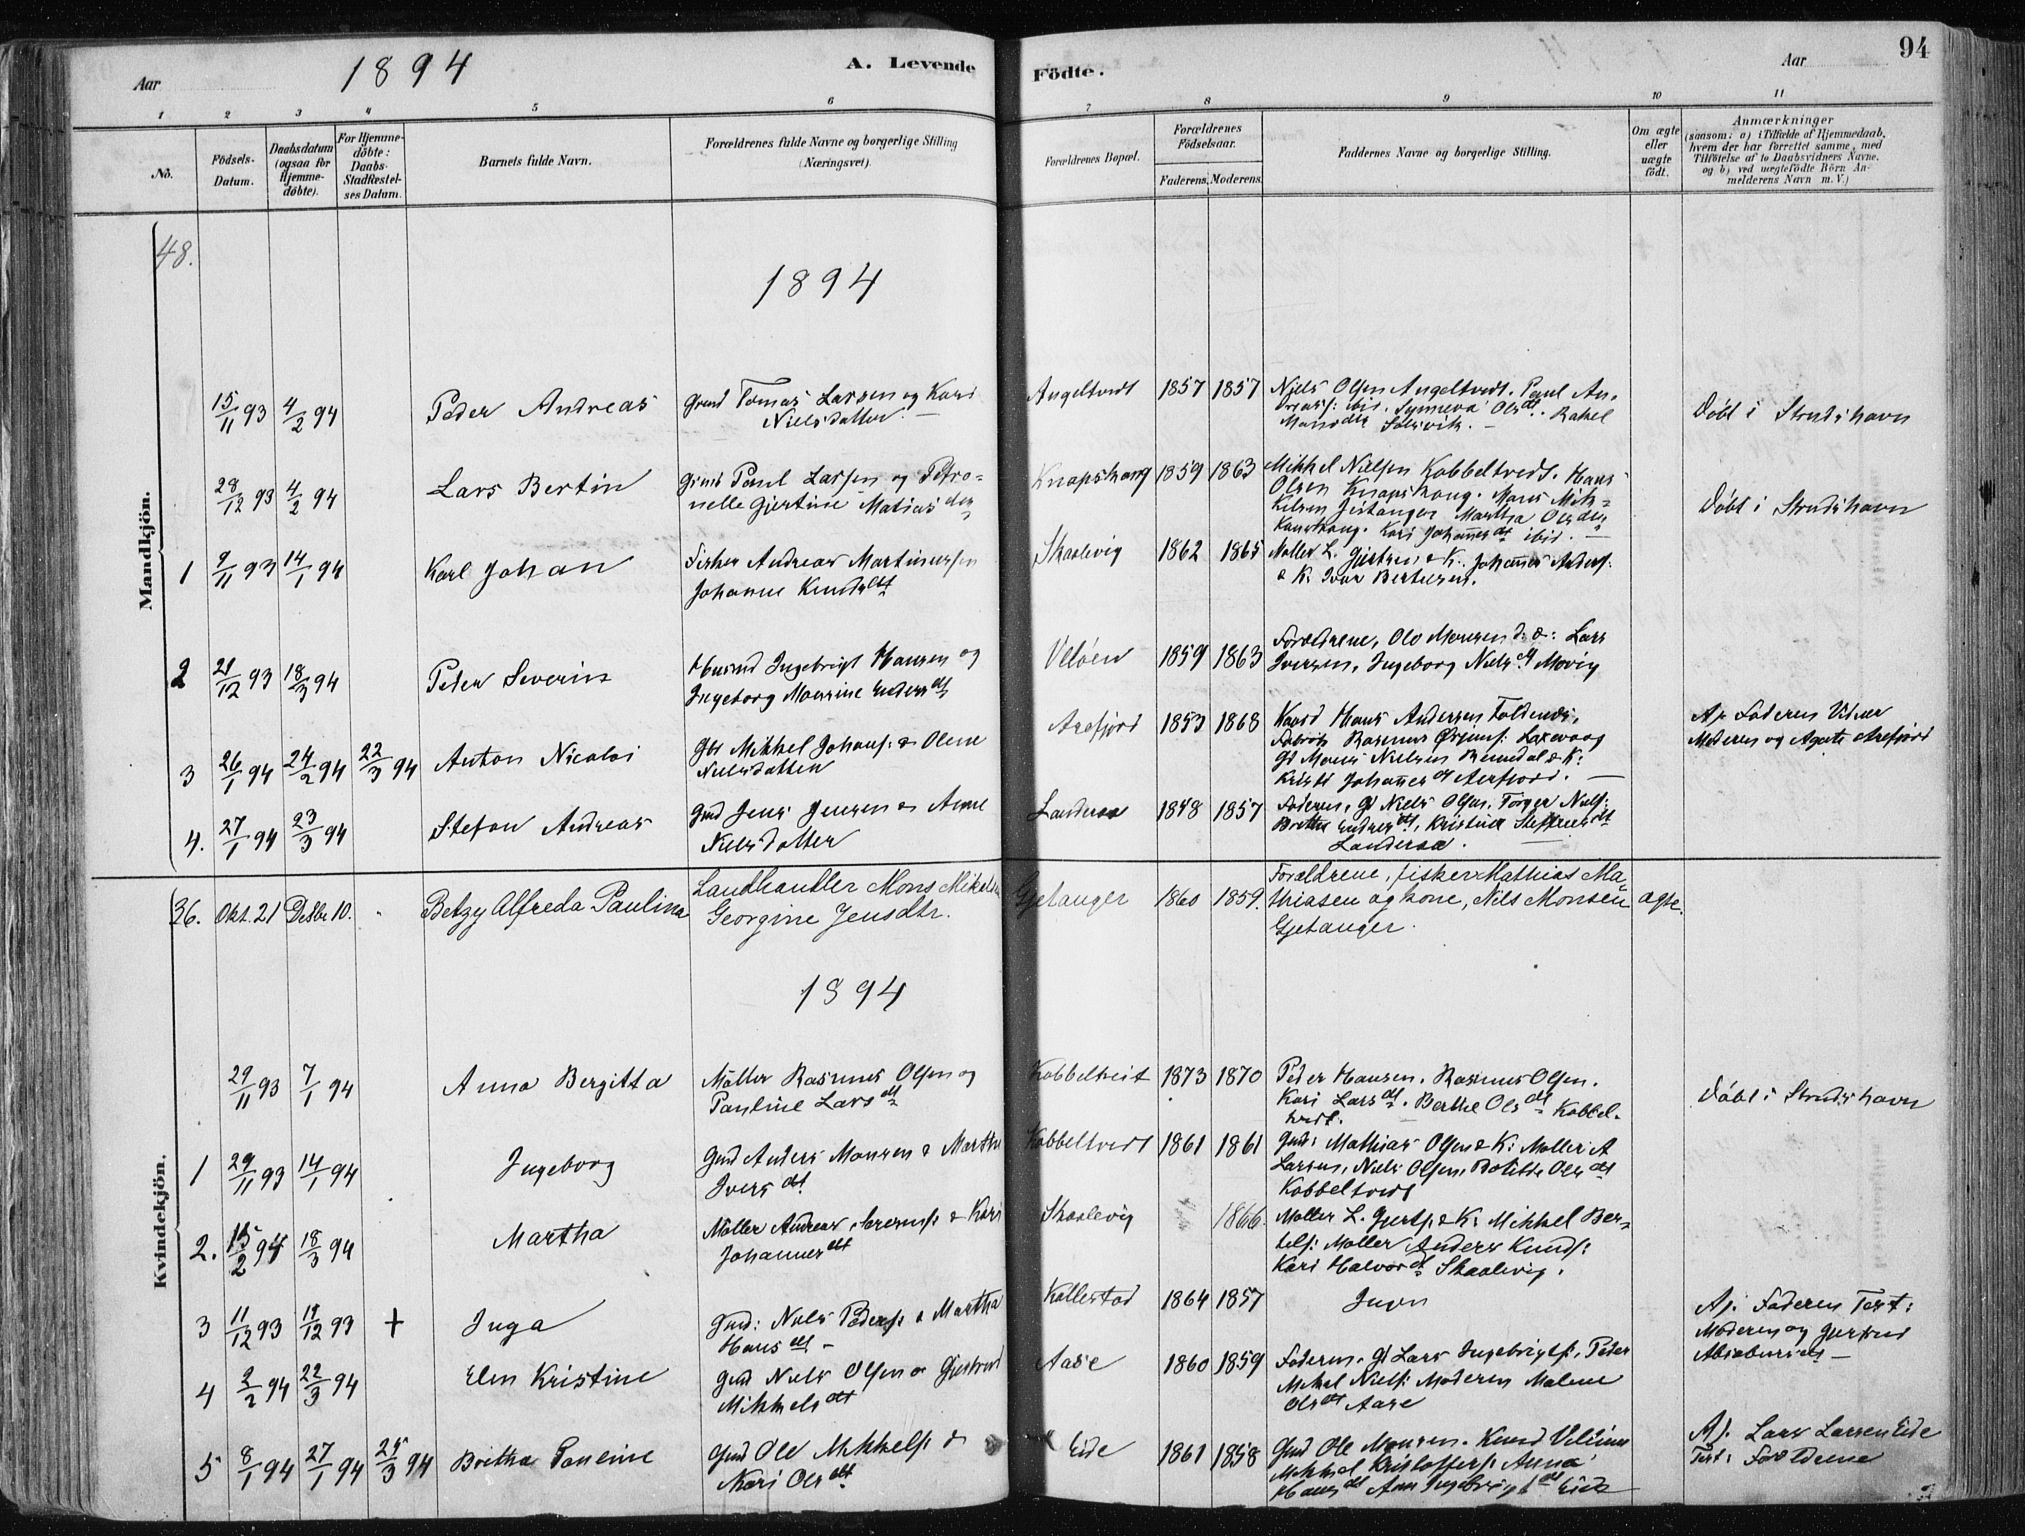 Aar 1894 A. Levende Födte. Aar 94
1 2 3 4 5 6 7 8 9 10 11
No.
Födsels-Datum.
Daabsdatum (ogsaa for Hjemme-döbte).
For Hjemme-döbte: Daabs-Stadfæstel-ses Datum.
Barnets fulde Navn.
Forældrenes fulde Navne og borgerlige Stilling (Næringsvei).
Forældrenes Bopæl.
Forældrenes Födselsaar.
Faderens. Moderens.
Faddernes Navne og borgerlige Stilling.
Om ægte eller uægte födt.
Anmærkninger
(saasom: a) i Tilfælde af Hjemmedaab,
hvem der har forrettet samme, med
Tilföielse af to Daabsvidners Navne,
og b) ved uægtefödte Börn An-
melderens Navn m. V.)
Mandkjön.
48.
1894
15/11 93 4/2 94 Peder Andreas Grmd Tomas Larsen og Kari
Nielsdatter.
Angeltvedt 1857 1857 Niels Olsen Angeltvedt. Paul An-
dreass: ibid. Synneva Olsdt. Rakel
Monsdtr Solsvik.
Döbt i Strudshavn
28/12 93 4/2 94 Lars Bertin Grmd Paul Larsen og Petro-
nelle Gjertine Matiasdtr
Knapskong 1859 1863 Mikkel Nielsen Kobbeltvedt. Hans
Olsen Knapskong. Mons Mik-
kelsen Gjetanger Martha Olsdtr
Knapskong. Kari Johannesdt ibid.
Döbt i Strudshavn
1 9/11 93 14/1 94 Karl Johan Fisker Andreas Martinussen
Johanne Knudsdt
Skaalevig 1862 1865 Møller L. Gjertsen & K. Johannes Anders:
& K. Ivar Bertelsen.
2 21/12 93 18/3 94 Peder Severin Husmd Ingebrigt Hansen og
Ingeborg Monsine Endersdt
Veløen 1859 1863 Forældrene, Ole Monsen d. æ: Lars
Iversen, Ingeborg Nielsdt Movig
3 26/1 94 24/2 94 22/3 94 Anton Nicolai Gbr Mikkel Johans: & Olene
Nielsdatter
Arefjord 1853 1868 Hans Andersen Foldnes,
Rasmus Ørjans: Laxevaag
Gd Mons Nielsen Bennedal & K:
Kristi Johannesdt Arefjord.
Af Faderen Vidner
Moderen og Agate Arefjord
4. 27/1 94 23/3 94 Stefan Andreas Gmd Jens Jensen & Anne
Nielsdatter
Landeraa 1848 1857 Faderen, Gd Niels Olsen, Torger Niels:
Brithe Endresdt, Kristine Steffensdt
Landeraa.
Kvindekjön.
36. Okt. 21 Decbr 10. Betzy Alfreda Paulina Landhandler Mons Mikelsen
Georgine Jensdtr.
Gjetanger 1860 1859. Forældrene, fisker Mathias Ma-
thiasen og kone, Nils Monsen
Gjetanger.
ægte.
1894
29/11 93 7/1 94 Anna Bergitta Møller Rasmus Olsen og
Pauline Larsdt
Kobbeltveit 1873 1870 Peder Hansen. Rasmus Olsen.
Kari Larsdt. Berthe Olsdt Kobbel-
tvedt.
Döbt i Strudshavn
1 29/11 93 14/1 94 Ingeborg Gmd Anders Monsen & Martha
Iversdt
Kobbeltvedt 1861 1861 Gmd: Mathias Olsen & K: Møller A
Larsen, Niels Olsen, Bolette Olsdt
Kobbeltvedt
2. 15/2 94 18/3 94 Martha Møller Andreas Sørens: & Kari
Johannesdt
Skaalevig 1866. Møller L. Gjerts: & K: Mikkel Ber-
tels: Møller Anders Knuds:
Kari Halvorsdt Skaalevig.
3 11/12 93 11/12 93 + Inga Gmd: Niels Peders: & Martha
Hansdt
Kallestad 1864 1857 Ingen
Af Faderen Test:
Moderen og Gjertrud
4 2/2 94 22/3 94 Elen Kristine Gmd Niels Olsen & Gjertrud
Mikkelsdt
Aase 1860 1859 Faderen, Gd Lars Ingebrigts: Peder
Mikal Niels: Moderen Malene
Olsdt Aase
5 8/1 94 27/1 94 25/3 94 Britha Pauline Gmd Ole Mikkels: &
Kari Olsdt
Eide 1861 1858 Gmd Ole Monsen. Knud Villiam
Mikkel Kristoffers: Anna
Hansdt Ane Ingebrigtsdt Eide
Af. Lars Larsen Eide
Test: Forældrene